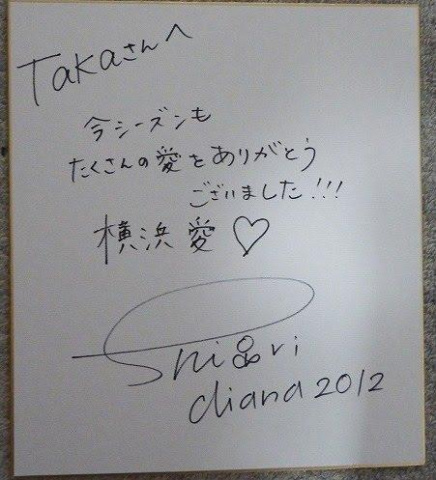 Takaさんへ
今シーズンも
たくさんの愛をありがとう
ございました!!!
横浜 愛 ♡
Shiori
diana 2012